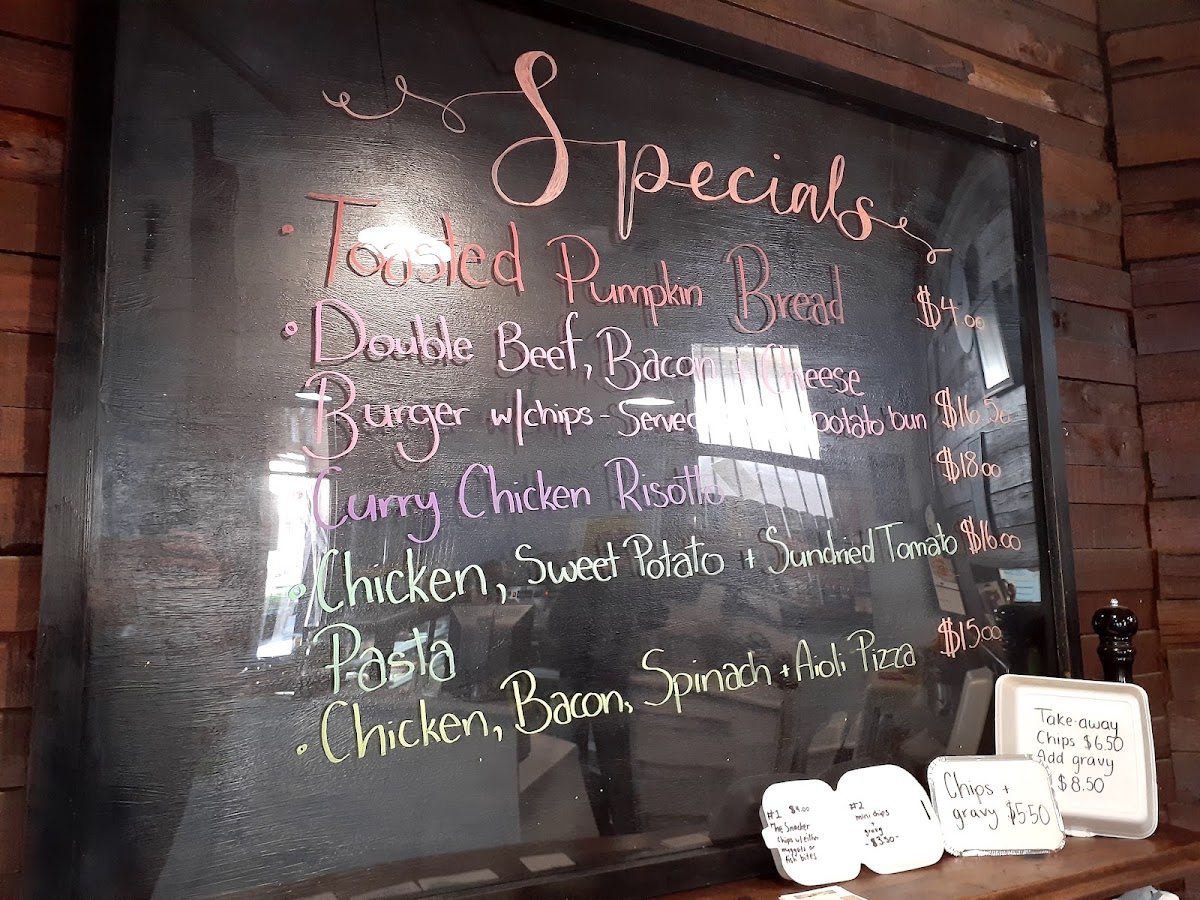 Specials
• Toasted Pumpkin Bread $4.00
• Double Beef, Bacon + Cheese
Burger w/chips - Served potato bun $16.50
Curry Chicken Risotto $18.00
• Chicken, Sweet Potato + Sundried Tomato $16.00
Pasta
• Chicken, Bacon, Spinach + Aioli Pizza $15.00
Take-away
Chips $6.50
Add gravy
$8.50
Chips +
gravy $5.50
#1 $9.00
The Snacker
chips w/either
nuggets or
fish bites
#2
mini chips
+
gravy
- $3.50 -